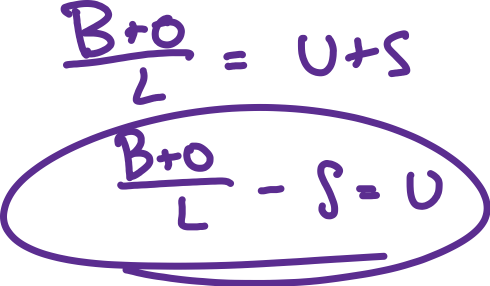 (B+O)/L = U+S
(B+O)/L - S = U